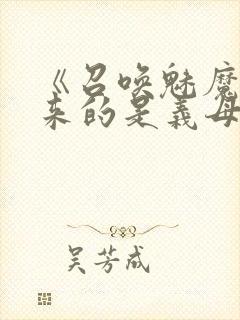 《召唤魅魔
来的是义母
吴芳成